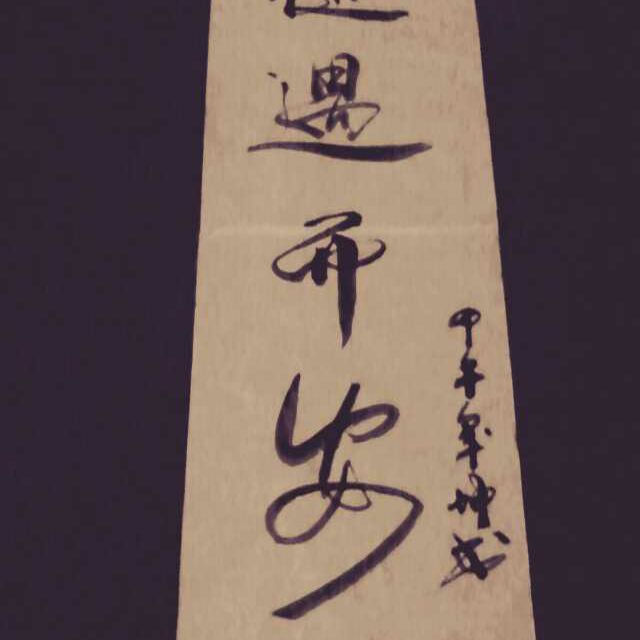 遇而安
甲午年坤